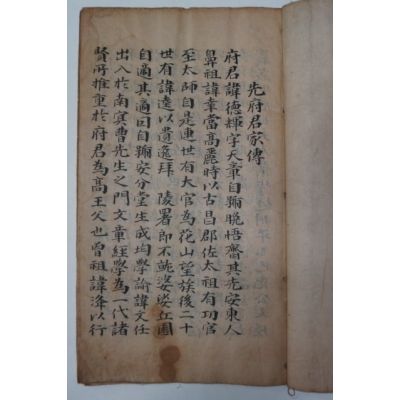 先府君家傳
府君諱德輝字天章自號晩悟齋其先安東人
鼻祖諱幸當高麗時以古昌郡佐太祖有功官
至太師自是連世有大官爲花山望族後二十
世有諱逵以遺逸拜陵署郎不就婆娑丘園
自適其適曰自號安分堂生成均學諭諱文任
出入於南冥曹先生之門文章經學爲一代諸
賢所推重於府君爲高王父也曾祖諱洚以行